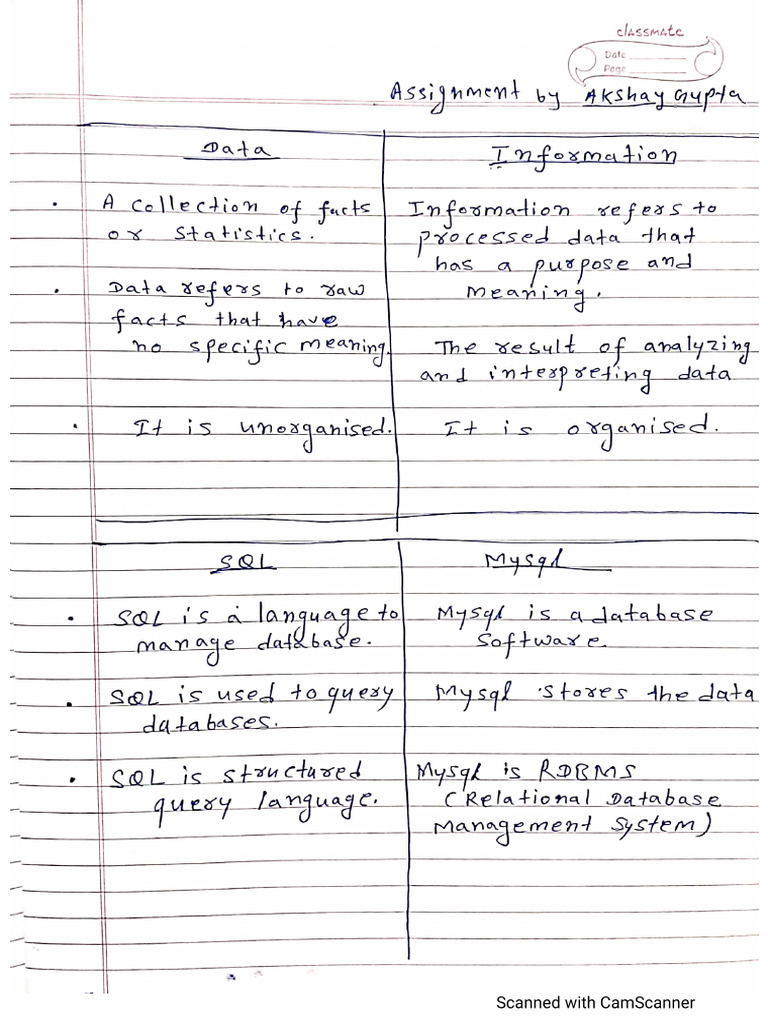 classmate
Date
Page
Assignment by Akshay Gupta
Data
Information
A collection of facts
or Statistics.
Data refers to raw
facts that have
no specific meaning.
It is unorganised.
Information refers to
processed data that
has a purpose and
meaning.
The result of analyzing
and interpreting data
It is organised.
SQL
Mysql
SQL is a language to
manage database.
SQL is used to query
databases.
SQL is structured
query language.
Mysql is a database
Software.
Mysql stores the data
Mysql is RDBMS
(Relational Database
Management System)
Scanned with CamScanner